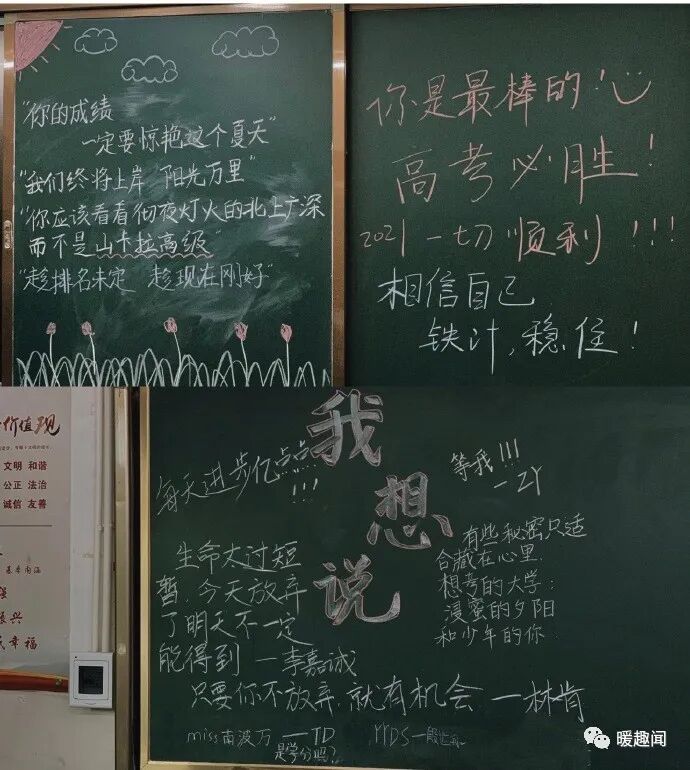 “你的成绩
一定要惊艳这个夏天”
“我们终将上岸 阳光万里”
“你应该看看彻夜灯火的北上广深
而不是山卡拉高级”
“趁排名未定 趁现在刚好”
你是最棒的！
高考必胜！
2021一切顺利！！！
相信自己
铁汁，稳住！
价值观
文明 和谐
公正 法治
诚信 友善
基本内涵
幸福
我想说
每天进步亿点点
！！！
等我！！！
—ZY
生命太过短
暂，今天放弃
了明天不一定
能得到 —李嘉诚
有些秘密只适
合藏在心里
想考的大学：
浸蜜的夕阳
和少年的你
只要你不放弃，就有机会 —林肯
miss南波万 —TD
是学分吗？
YYDS
暖趣闻